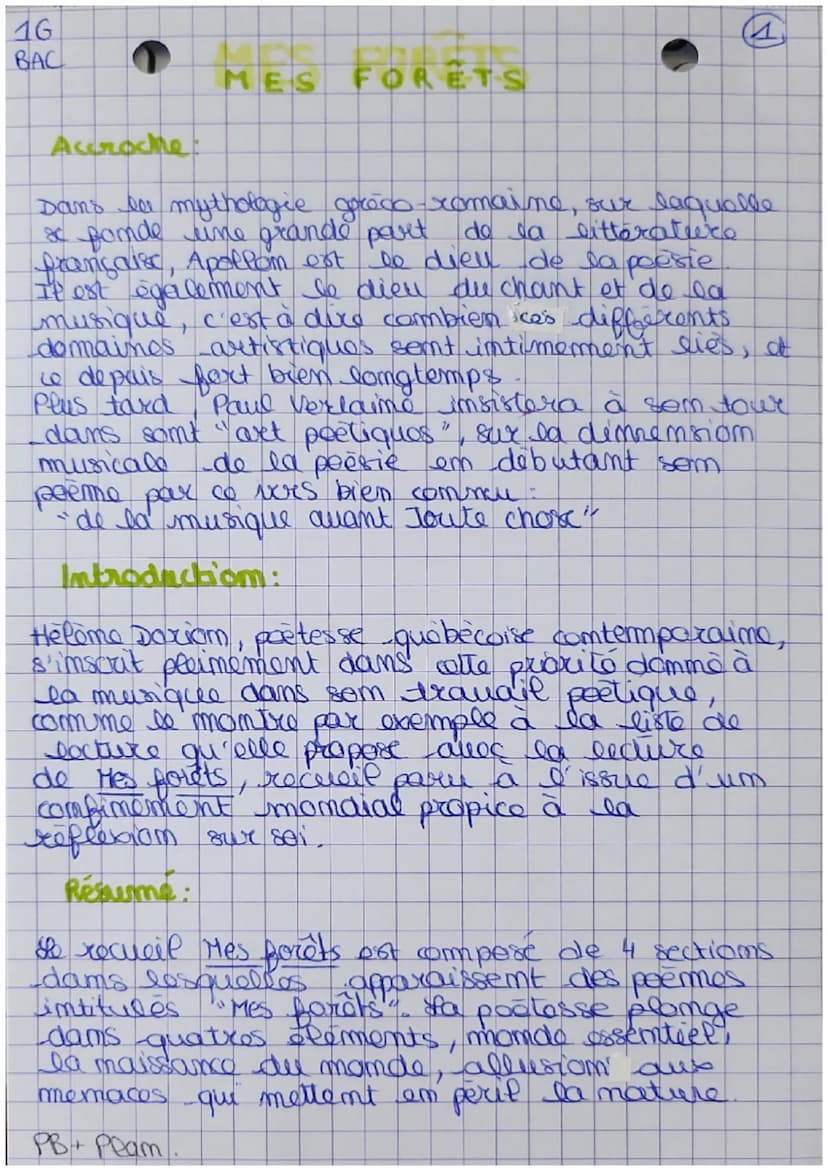 1G
①
BAC
MES FORÊTS
Accroche:
Dans la mythologie gréco-romaine, sur laquelle
se fonde une grande part de la littérature
française, Apollon est le dieu de la poésie.
Il est également le dieu du chant et de la
musique, c'est à dire combien ces différents
domaines artistiques sont intimement liés, et
ce depuis fort bien longtemps.
Plus tard, Paul Verlaine insistera à son tour
dans somt "art poétiques", sur la dimnension
musicale de la poésie en débutant son
poème par ce vers bien connu:
"de la musique avant Toute chose"
Introduction:
Hélène Dorion, poètesse québécoise contemporaine,
s'inscrit pleinement dans cette priorité donné à
la musique dans son travail poétique,
comme le montre par exemple à la liste de
lecture qu'elle propose avec la lecture
de Mes forêts, recueil paru à l'issue d'un
confinement mondial propice à la
réflexion sur soi.
Résumé:
Le recueil Mes forêts est composé de 4 sections
dans lesquelles apparaissent des poèmes
intitulés "Mes forêts". La poètesse plonge
dans quatres éléments, monde essentiel,
la naissance du monde, allusion aux
menaces qui mettent en péril la nature.
PB+ Plan.